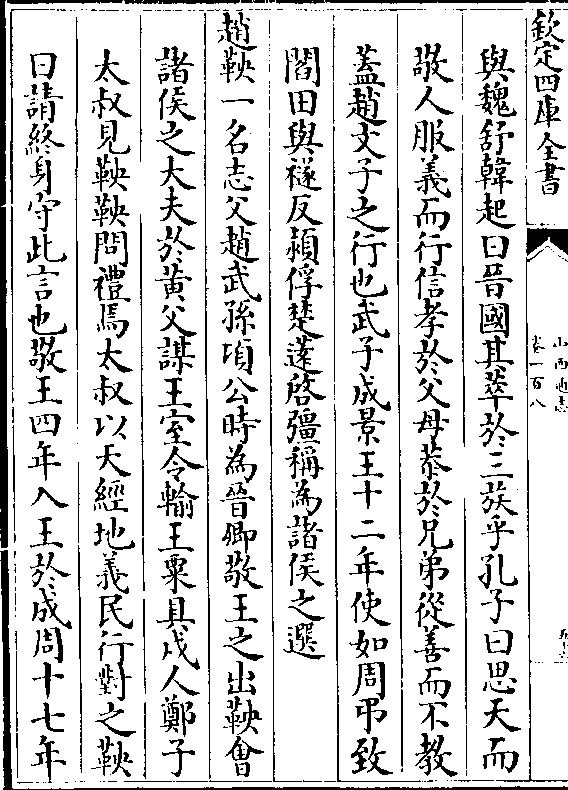 欽定四庫全書
山西通志
卷一百八
與魏舒韓起曰晉國其萃於三族乎孔子曰思天而
敬人服義而行信孝於父母恭於兄弟從善而不教
蓋趙文子之行也武子成景王十二年使如周弔致
閻田與襚反潁俘楚薳啓彊稱為諸侯之選
趙鞅一名志父趙武孫頃公時為晉卿敬王之出鞅會
諸侯之大夫於黃父謀王室令輸王粟具戍人鄭子
太叔見鞅鞅問禮焉太叔以天經地義民行對之鞅
曰請終身守此言也敬王四年入王於成周十七年